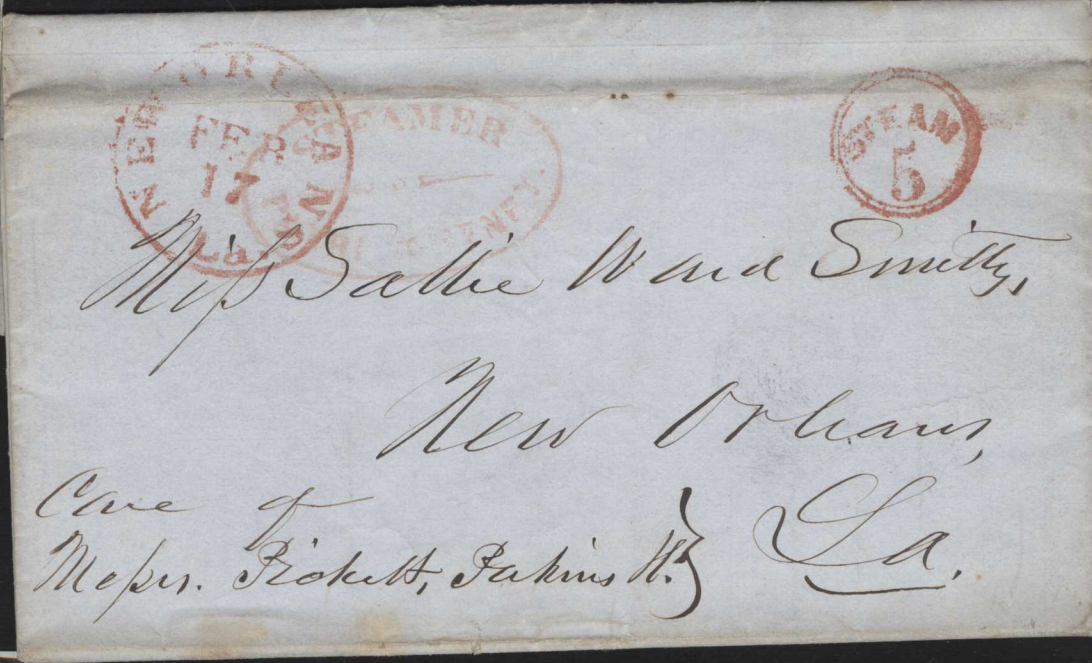 NEW ORLEANS LA
FEB
17
STEAMER
STEAM
5
Miss Sallie Ward Smith,
New Orleans,
La.
Care of
Messrs. Pickett, Perkins